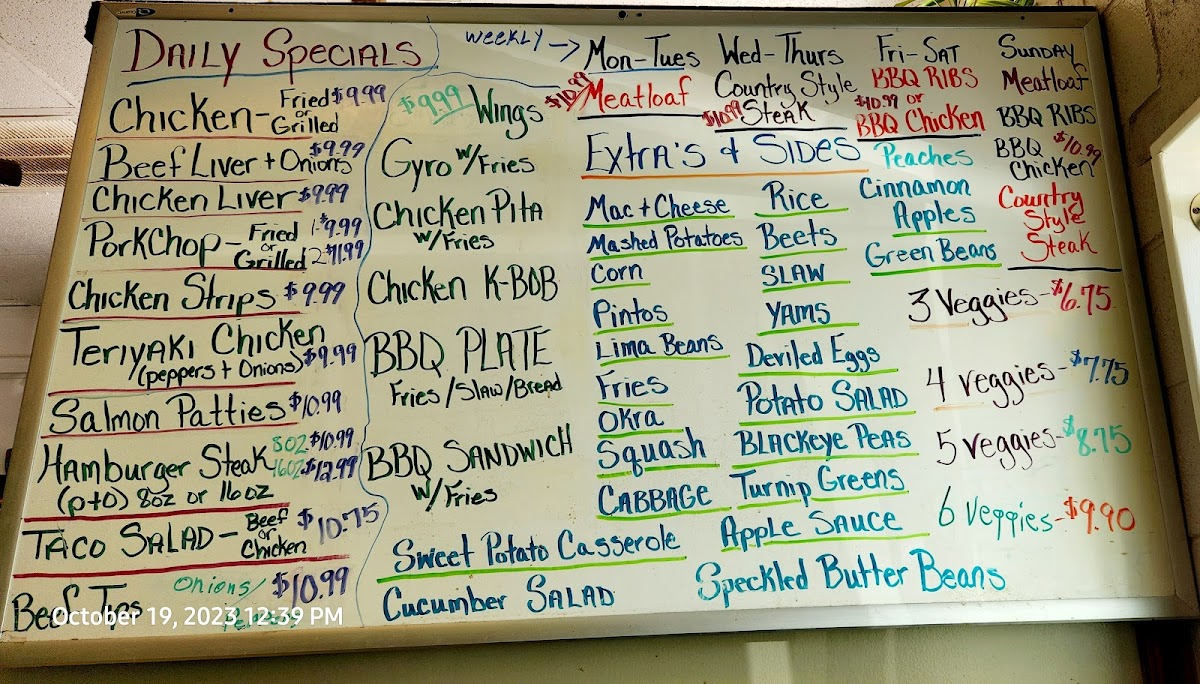 DAILY SPECIALS
Chicken- Fried $9.99
or
Grilled
Beef Liver + Onions $9.99
Chicken Liver $9.99
PorkChop- Fried 1-$9.99
or
Grilled 2-$11.99
Chicken Strips $9.99
Teriyaki Chicken
(peppers + Onions) $9.99
Salmon Patties $10.99
Hamburger Steak 8oz $10.99
16oz $12.99
(p+o) 8oz or 16oz
Taco Salad- Beef $10.75
or
Chicken
Beef Onions/ $10.99
October 19, 2023 12:39 PM
$9.99 Wings
Gyro w/Fries
Chicken Pita
w/Fries
Chicken K-BOB
BBQ PLATE
Fries/Slaw/Bread
BBQ SANDWICH
w/Fries
Weekly → Mon-Tues Wed-Thurs Fri-Sat Sunday
$10.99 Meatloaf
Country Style
$10.99 Steak
BBQ RIBS
$10.99 or
BBQ Chicken
Meatloaf
BBQ RIBS
BBQ $10.99
Chicken
Country
Style
Steak
Extra's & Sides
Mac + Cheese
Mashed Potatoes
Corn
Pintos
Lima Beans
Fries
Okra
Squash
CABBAGE
Rice
Beets
SLAW
YAMS
Deviled Eggs
Potato SALAD
BLACKeye Peas
Turnip Greens
Apple Sauce
Peaches
Cinnamon
Apples
Green Beans
Sweet Potato Casserole
Cucumber SALAD
Speckled Butter Beans
3 Veggies-$6.75
4 veggies-$7.75
5 veggies-$8.75
6 veggies-$9.90